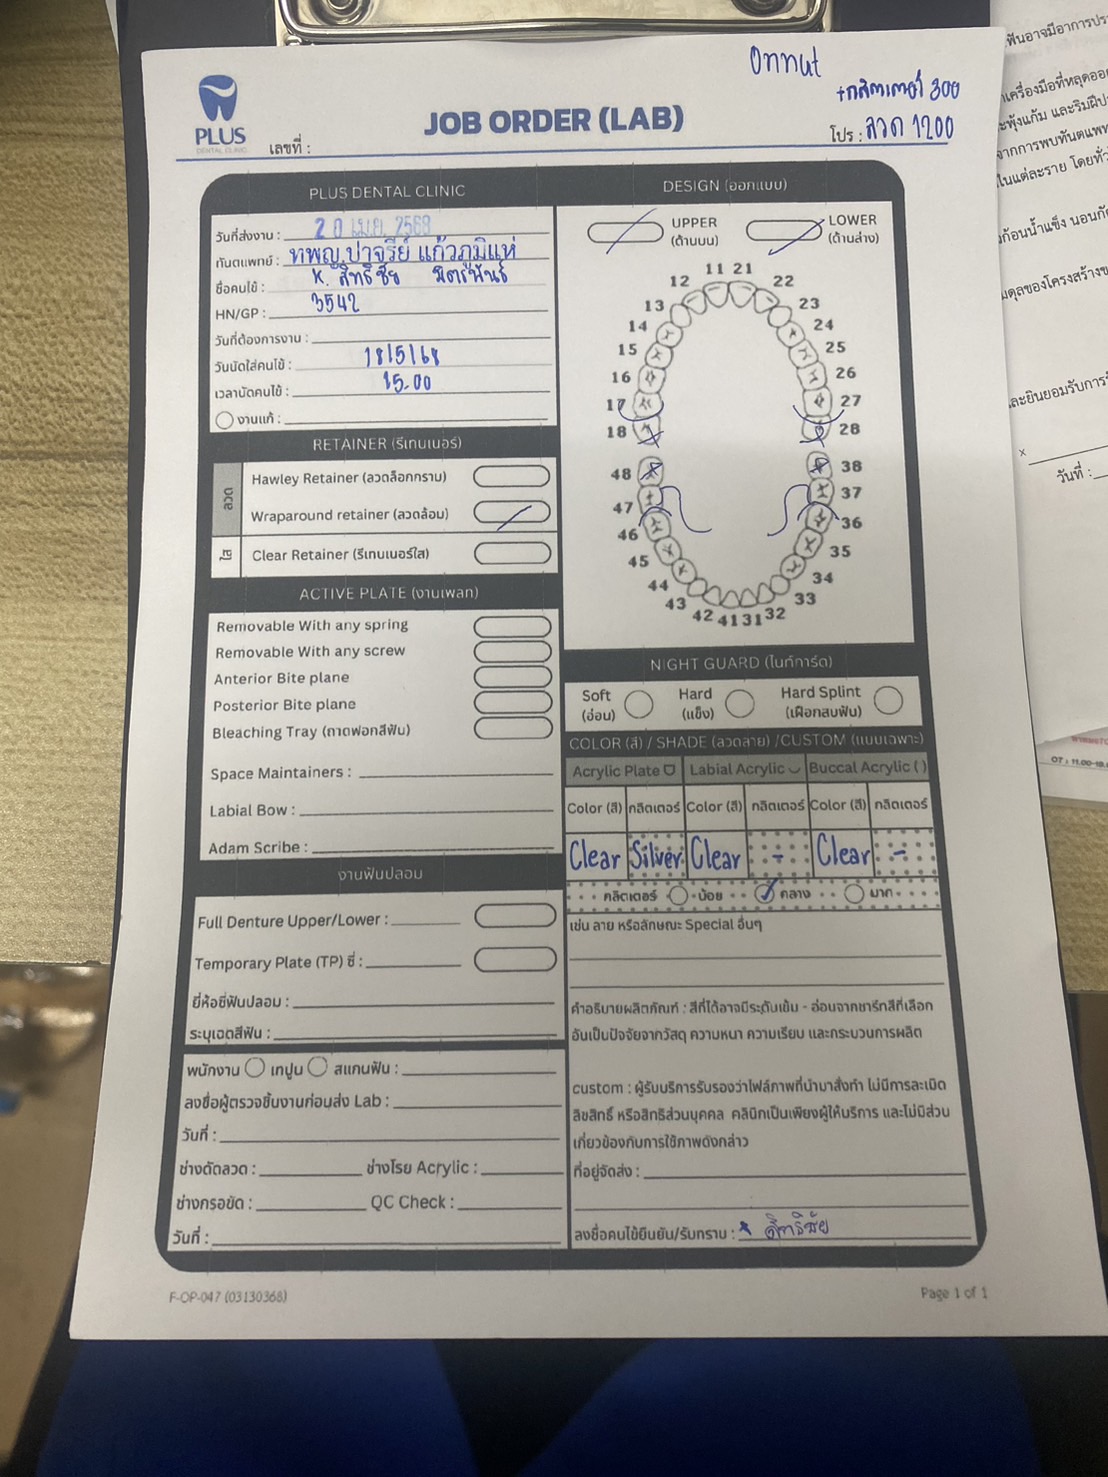 Onnut
+กลิตเตอร์ 300
PLUS
DENTAL CLINIC
JOB ORDER (LAB)
เลขที่ :
โปร : ลวด 1200
PLUS DENTAL CLINIC
วันที่ส่งงาน : 20 เม.ย. 2568
ทันตแพทย์ : ทพญ.ปาจรีย์ แก้วภูมิแห่
ชื่อคนไข้ : K. สิทธิชัย มิตรพันธ์
HN/GP : 3542
วันที่ต้องการงาน :
วันนัดใส่คนไข้ : 18/5/68
เวลานัดคนไข้ : 15.00
งานแก้ :
RETAINER (รีเทนเนอร์)
ลวด
Hawley Retainer (ลวดล็อกกราบ)
Wraparound retainer (ลวดล้อม)
ใส
Clear Retainer (รีเทนเนอร์ใส)
ACTIVE PLATE (งานเพลท)
Removable With any spring
Removable With any screw
Anterior Bite plane
Posterior Bite plane
Bleaching Tray (ถาดฟอกสีฟัน)
Space Maintainers :
Labial Bow :
Adam Scribe :
งานฟันปลอม
Full Denture Upper/Lower :
Temporary Plate (TP) ซี่ :
ยี่ห้อซี่ฟันปลอม :
ระบุเฉดสีฟัน :
พนักงาน เทปูน สแกนฟัน :
ลงชื่อผู้ตรวจชิ้นงานก่อนส่ง Lab :
วันที่ :
ช่างดัดลวด : ช่างโรย Acrylic :
ช่างกรอขัด : QC Check :
วันที่ :
DESIGN (ออกแบบ)
UPPER
(ด้านบน)
LOWER
(ด้านล่าง)
11 21
12 22
13 23
14 24
15 25
16 26
17 27
18 28
48 38
47 37
46 36
45 35
44 34
43 33
42 41 31 32
NIGHT GUARD (ไนท์การ์ด)
Soft
(อ่อน)
Hard
(แข็ง)
Hard Splint
(เฝือกสบฟัน)
COLOR (สี) / SHADE (ลวดลาย) /CUSTOM (แบบเฉพาะ)
Acrylic Plate Labial Acrylic Buccal Acrylic ( )
Color (สี) กลิตเตอร์ Color (สี) กลิตเตอร์ Color (สี) กลิตเตอร์
Clear Silver Clear - Clear -
กลิตเตอร์ น้อย กลาง มาก
เช่น ลาย หรือลักษณะ Special อื่นๆ
คำอธิบายผลิตภัณฑ์ : สีที่ได้อาจมีระดับเข้ม - อ่อนจากชาร์ทสีที่เลือก
อันเป็นปัจจัยจากวัสดุ ความหนา ความเรียบ และกระบวนการผลิต
custom : ผู้รับบริการรับรองว่าไฟล์ภาพที่นำมาสั่งทำ ไม่มีการละเมิด
ลิขสิทธิ์ หรือสิทธิส่วนบุคคล คลินิกเป็นเพียงผู้ให้บริการ และไม่มีส่วน
เกี่ยวข้องกับการใช้ภาพดังกล่าว
ที่อยู่จัดส่ง :
ลงชื่อคนไข้ยืนยัน/รับทราบ : x สิทธิชัย
F-OP-047 (03130368)
Page 1 of 1
ฟันอาจมีอาการปร
เครื่องมือที่หลุดออ
ะพุ้งแก้ม และริมฝีป
จากการพบทันตแพท
ในแต่ละราย โดยทั่ว
ก้อนน้ำแข็ง นอนกั
มดุลของโครงสร้างข
และยินยอมรับการ
x
วันที่ :